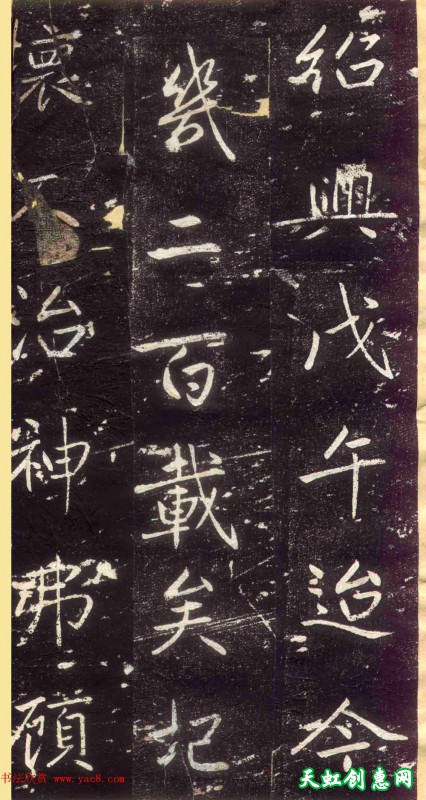 紹興戊午迨今
幾二百載矣圮
壞不治神弗顧
书法欣赏 www.yac8.com
天虹创惠网